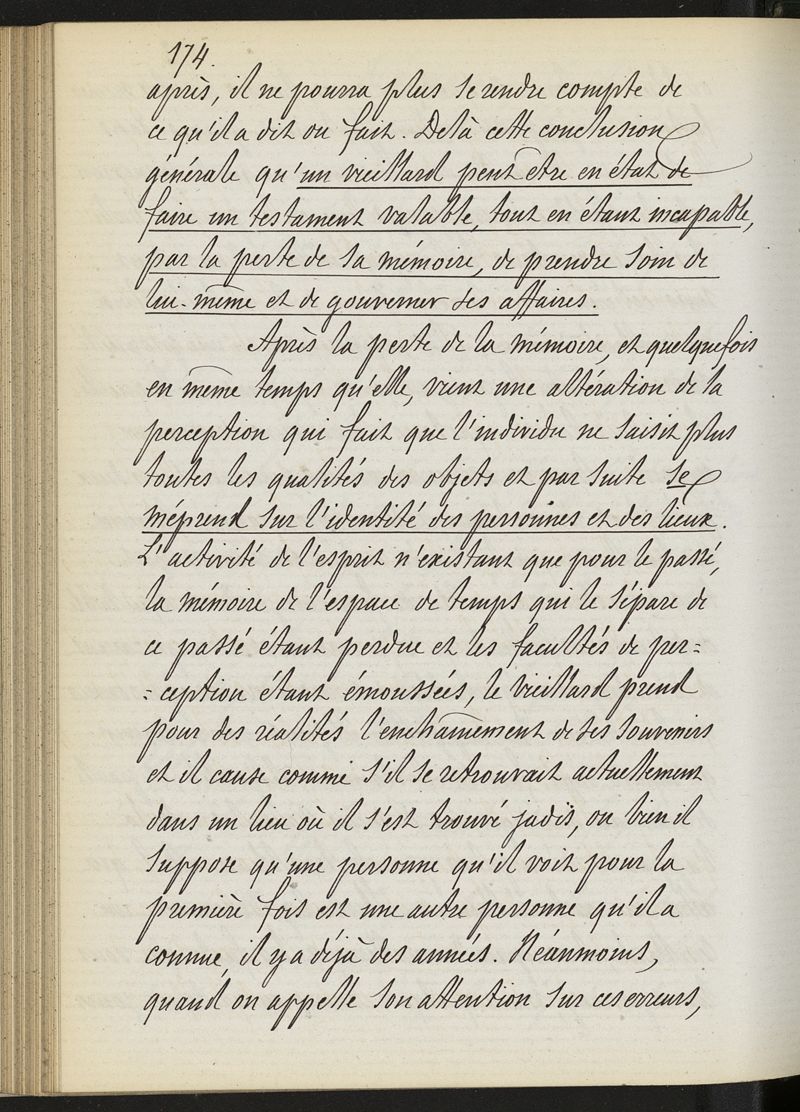 174.
après, il ne pourra plus se rendre compte de
ce qu'il a dit ou fait. De là cette conclusion
générale qu'un vieillard peut être en état de
faire un testament valable, tout en étant incapable,
par la perte de sa mémoire, de prendre soin de
lui-même et de gouverner ses affaires.
Après la perte de la mémoire, et quelquefois
en même temps qu'elle, vient une altération de la
perception qui fait que l'individu ne saisit plus
toutes les qualités des objets et par suite se
méprend sur l'identité des personnes et des lieux.
L'activité de l'esprit n'existant que pour le passé,
la mémoire de l'espace de temps qui le sépare de
ce passé étant perdue et les facultés de per=
=ception étant émoussées, le vieillard prend
pour des réalités l'enchaînement de ses souvenirs
et il cause comme s'il se retrouvait actuellement
dans un lieu où il s'est trouvé jadis, ou bien il
suppose qu'une personne qu'il voit pour la
première fois est une autre personne qu'il a
connue, il y a déjà des années. Néanmoins,
quand on appelle son attention sur ces erreurs,